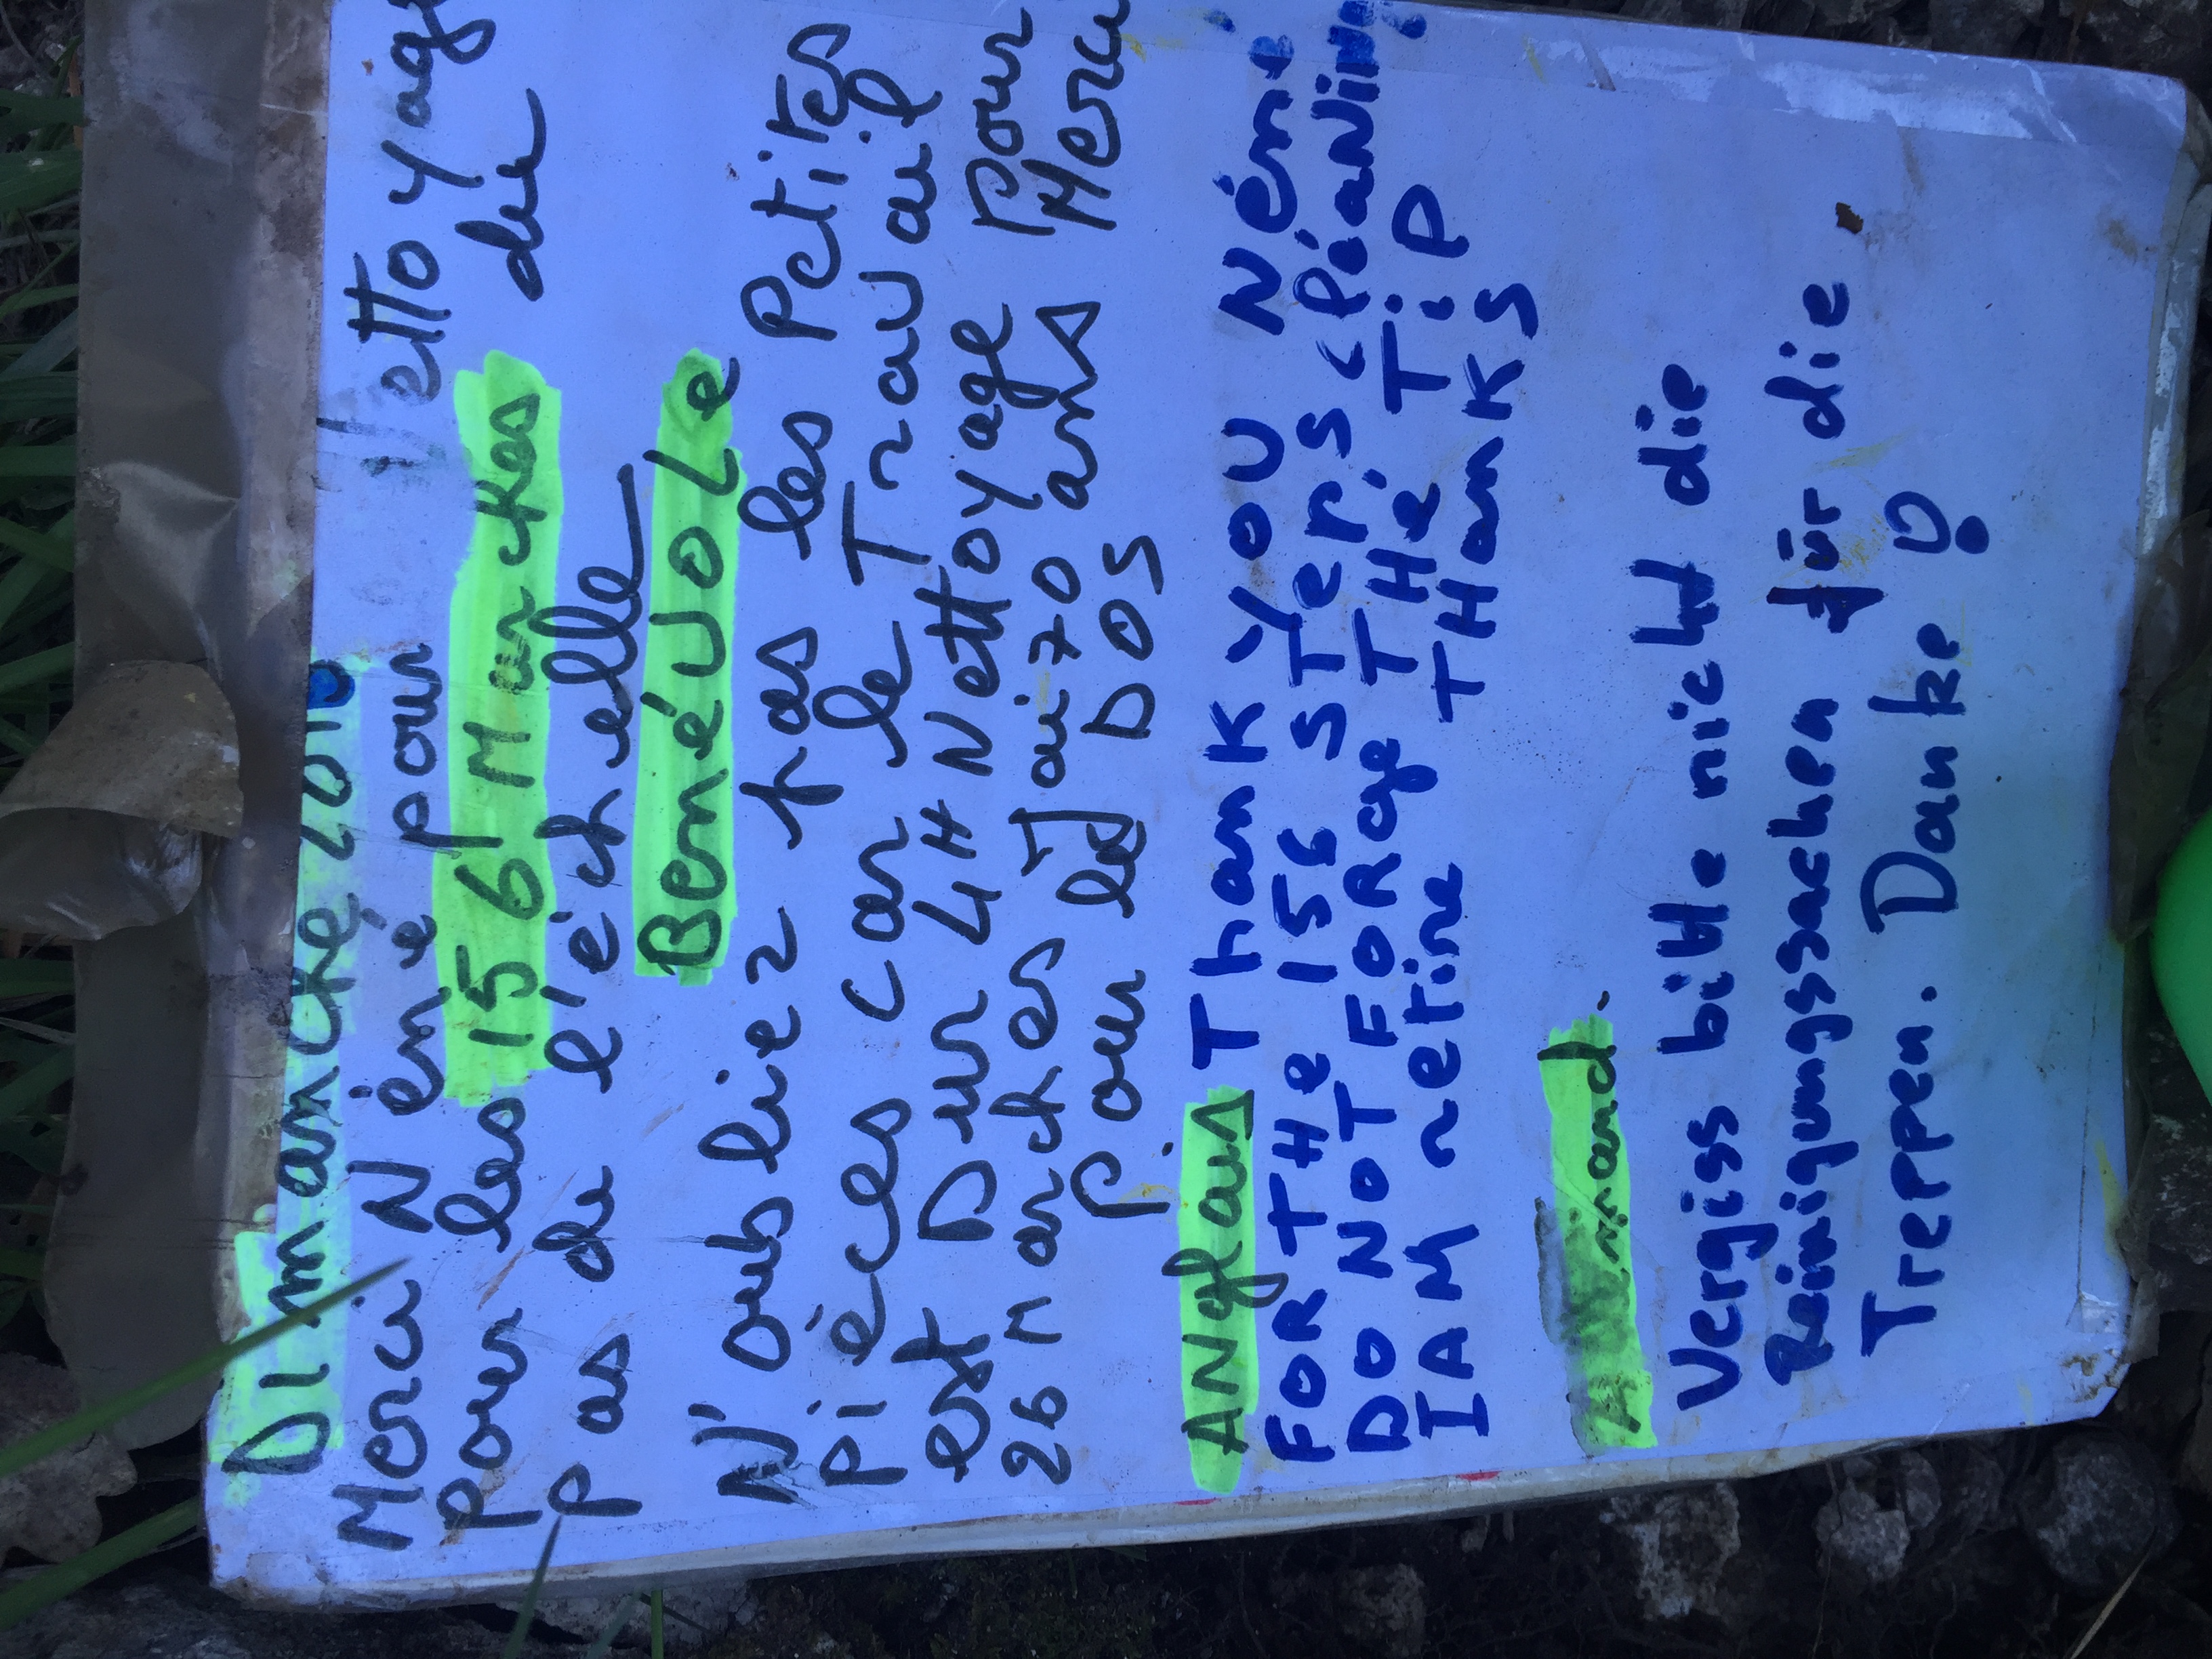 Dimanche 2016
Merci Néné pour Nettoyage
pour les 156 Marches du
pas de l'échelle
Bénévole
N'oubliez pas les Petites
Pièces car le Travail
est Dur 4H Nettoyage pour
26 Marches J'ai 70 ans Merci
pour le DOS
ANglais Thank YOU Néné
FOR THe 156 STePS cléaNing
DO NOT FORge THe TiP
I AM retire THanKS
Allemand.
Vergiss bitte nicht die
Reinigungssachen für die
Treppen. Danke !